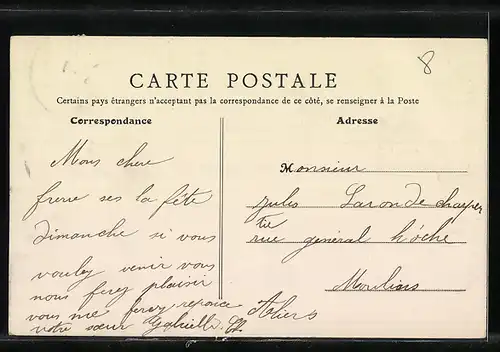 8
CARTE POSTALE
Certains pays étrangers n'acceptant pas la correspondance de ce côté, se renseigner à la Poste
Correspondance
Mons chere
frere ses la fête
dimanche si vous
vouley venir vous
nous ferez plaisir
vous me ferez reponce
votre sœur Gabielle
Adresse
Monsieur
Jules Laronde charpen
tie
rue général hoche
Moulins
Aliers